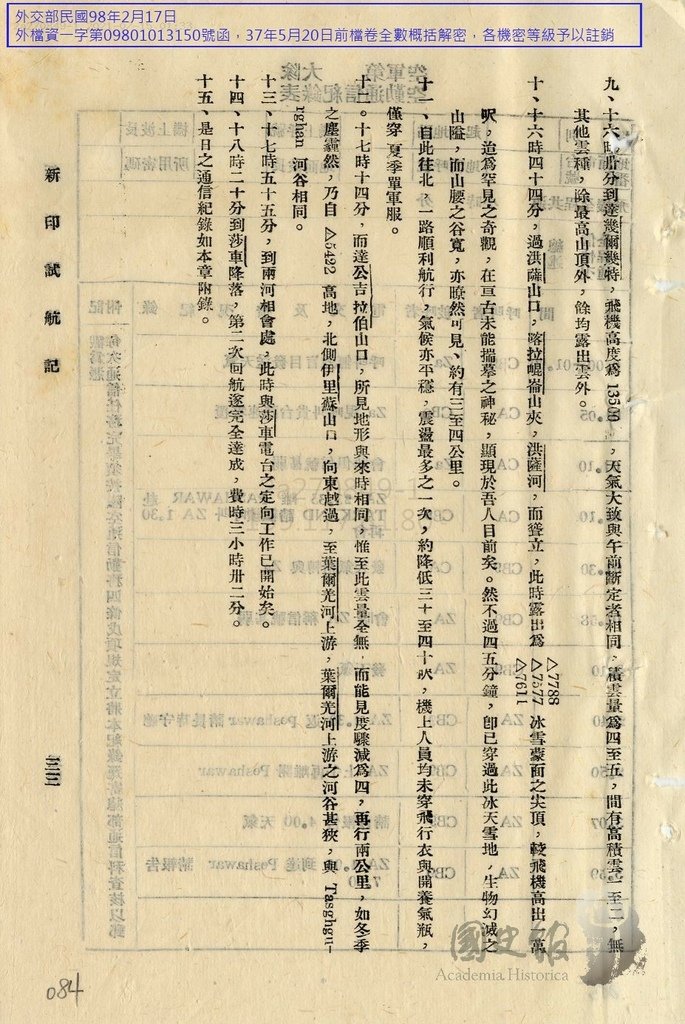 外交部民國98年2月17日
外檔資一字第09801013150號函，37年5月20日前檔卷全數概括解密，各機密等級予以註銷
九、十六時卅分到達幾爾幾特，飛機高度為 13500 ，天氣大致與午前斷定者相同，積雲量為四至五，間有高積雲一至二，無
其他雲種，除最高山頂外，餘均露出雲外。
十、十六時四十四分，過洪薩山口，喀拉崐崙山夾，洪薩河，而聳立，此時露出為 △7788 △7577 △7611 冰雪蒙面之尖頂，較飛機高出一萬
呎，造為罕見之奇觀，在亘古未能揣摹之神秘，顯現於吾人目前矣。然不過四五分鐘，即已穿過此冰天雪地，生物幻滅之
山隘，而山腰之谷寬，亦瞭然可見、約有三至四公里。
十一、自此往北，一路順利航行，氣候亦平穩，震盪最多之一次，約降低三十至四十呎，機上人員均未穿飛行衣與開養氣瓶，
僅穿 夏季單軍服。
十二。十七時十四分，而達公吉拉伯山口，所見地形與來時相同，惟至此雲量全無，而能見度驟減為四，再行兩公里，如冬季
之塵霾然，乃自 △5422 高地，北側伊里蘇山口，向東越過，至葉爾羌河上游，葉爾羌河上游之河谷甚狹，與 Tasghgu-
rghan 河谷相同。
十三、十七時五十五分，到兩河相會處，此時與莎車電台之定向工作已開始矣。
十四、十八時二十分到莎車降落，第二次回航遂完全達成，費時三小時卅二分。
十五、是日之通信紀錄如本章附錄。
新印試航記
三三
084
國史館
Academia Historica